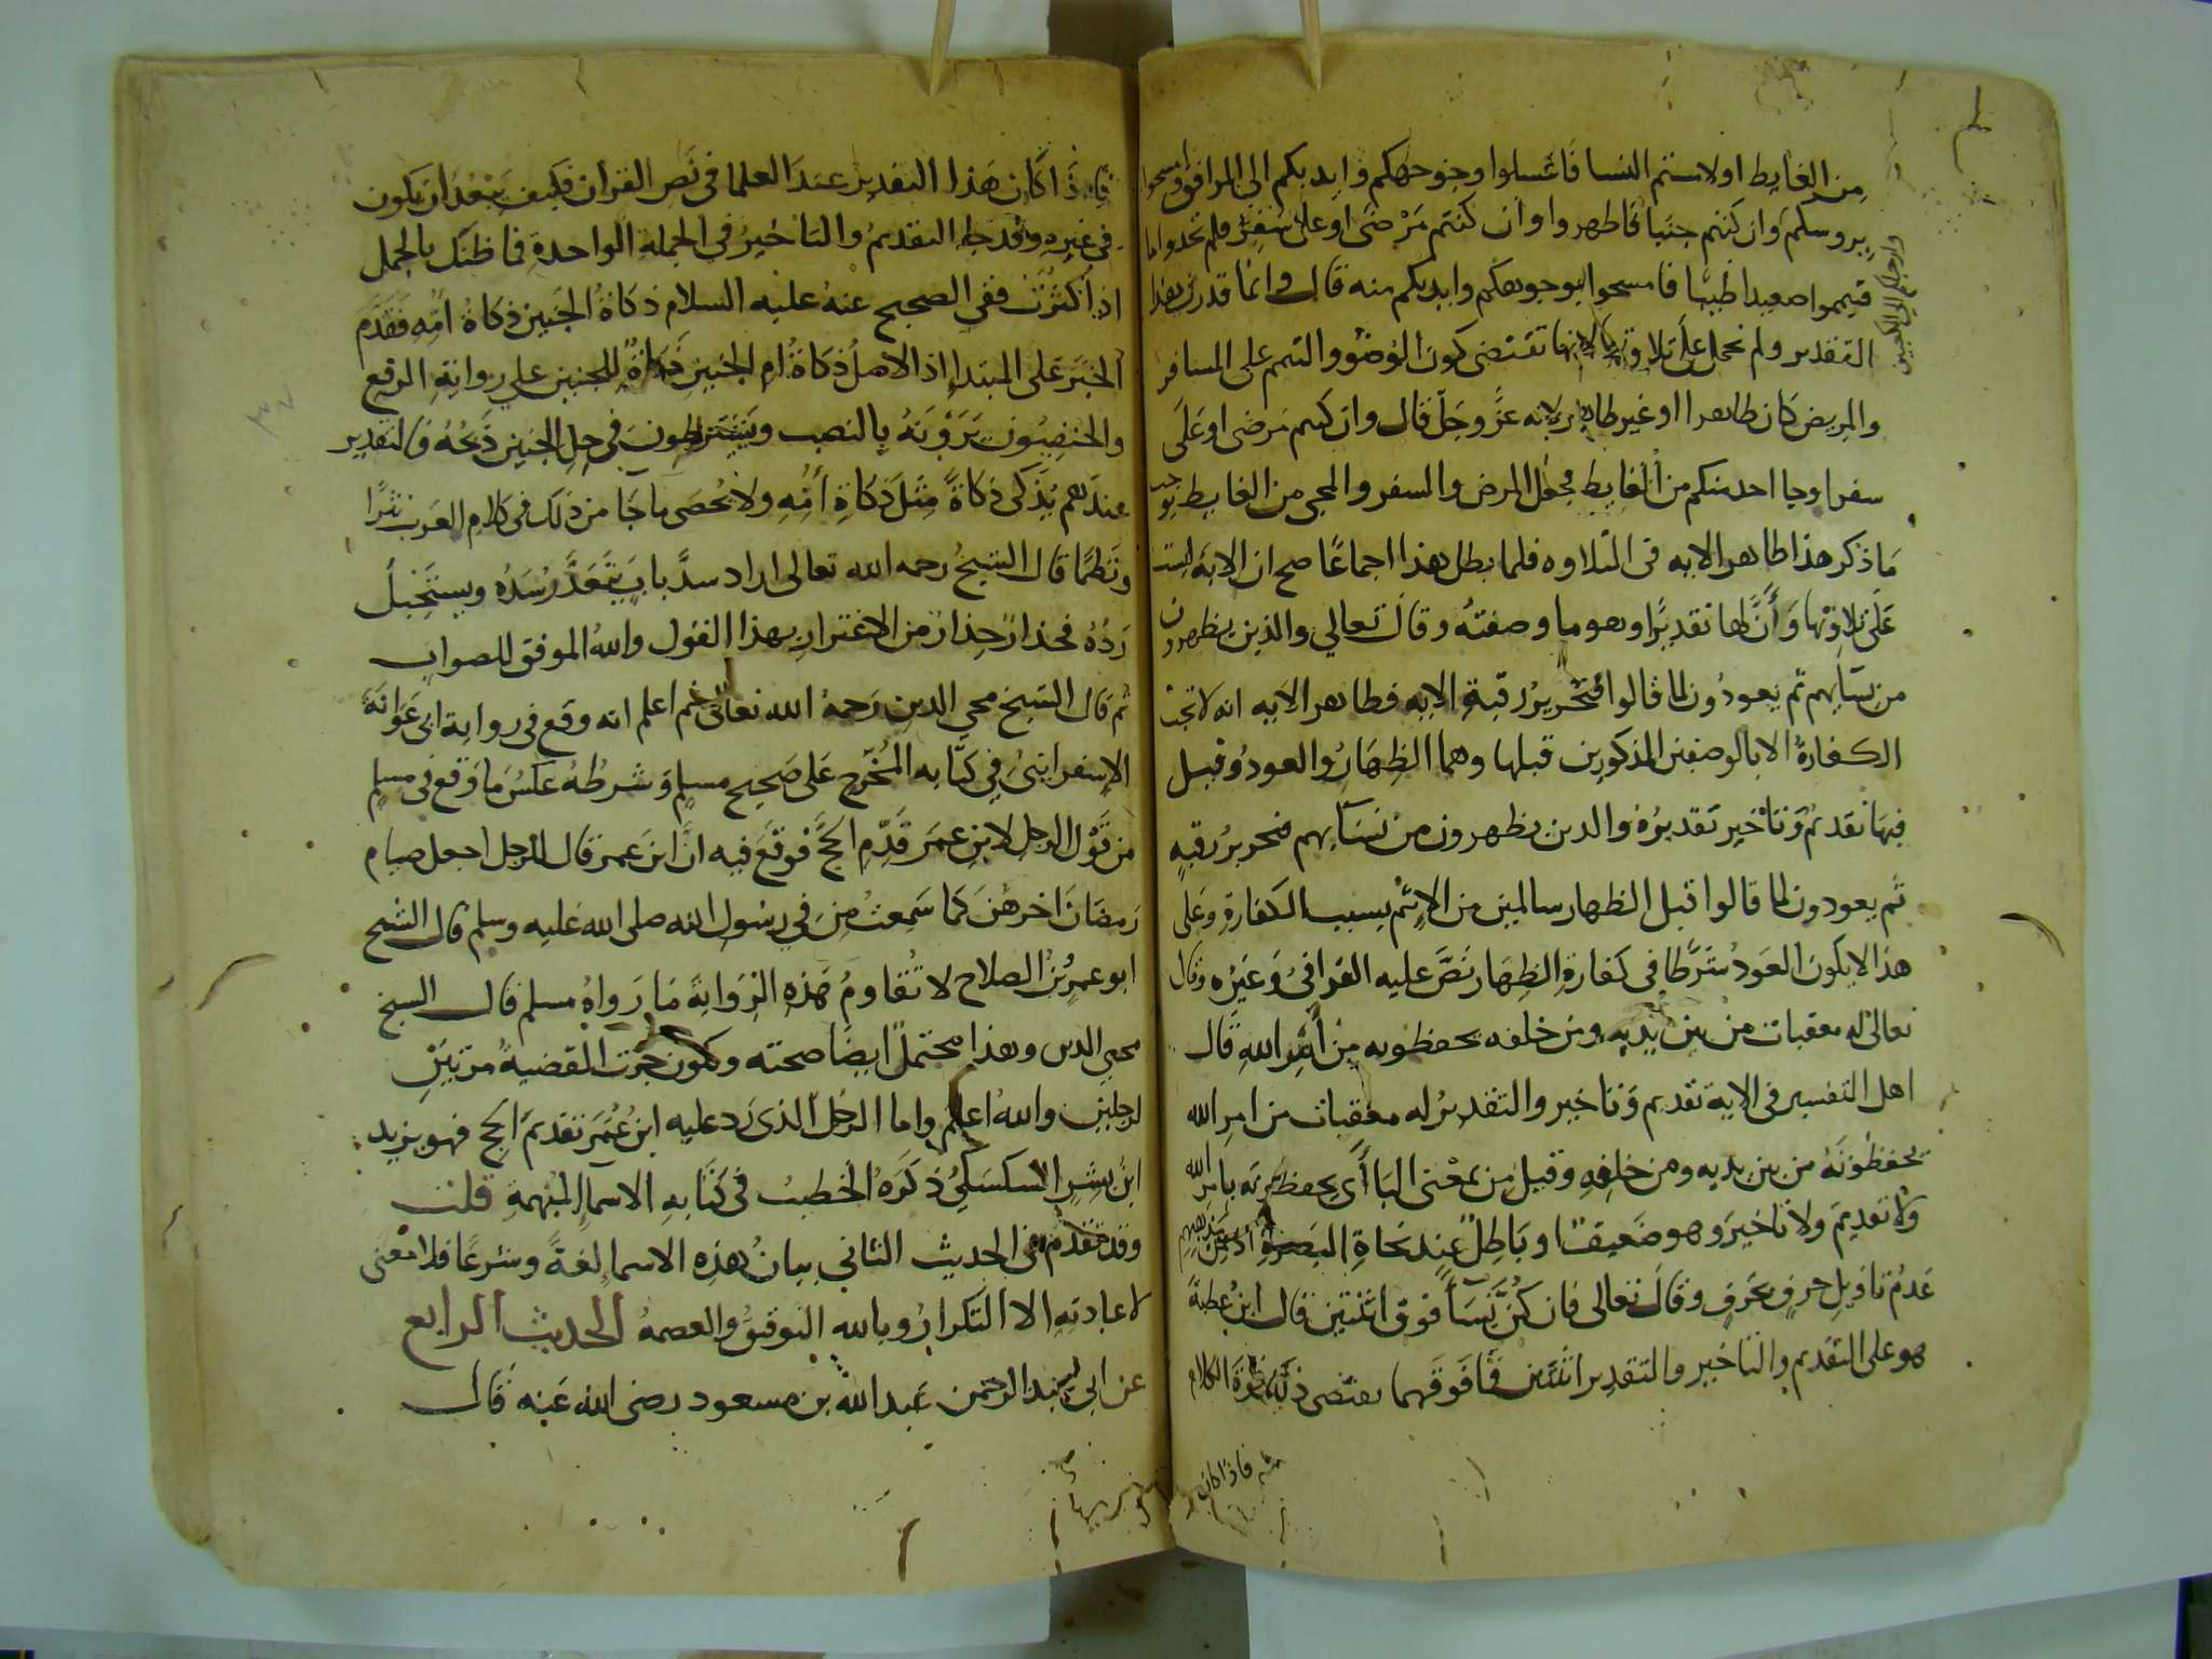 من الغايط او لامستم النسا فاغسلوا وجوهكم وايديكم الى المرافق وامسحوا
بروسكم وان كنتم جنبا فاطهروا وان كنتم مَرْضَى او على سَفَرٍ فلم تجدوا ما
فتيمموا صعيدا طيبا فامسحوا بوجوهكم وايديكم منه قال وانما قدرت هذا
التقدير ولم تحمل على تلاوتها لانها تقتضى كون الوضوء والتيمم على المسافر
والمريض كان طاهرا او غير طاهر لانه عزَّ وجَلَّ قال وان كنتم مرضى او عَلَى
سفر او جا احد منكم من الغايط فجعل المرض والسفر والمجى من الغايط يوجب
مَا ذكر هذا ظاهر الايه فى التلاوه فلما بطل هذا اجماعًا صح ان الاية ليست
عَلَى تلاوتها وَأَنَّ لها تقديرًا وهو ما وصفتُه وقال تعالي والذين يظهرون
من نسايهم ثم يعودُون لما قالوا فتحريرُ رقبةٍ الايه فظاهر الايه انه لا تجبُ
الكفارةُ الا بالوصفين المذكورين قبلها وهما الظِهَارُ والعودُ وقيل
فيهَا تقديمٌ وَتأخير تقديرُهُ والذين يظهرون من نسَآيهم فتحريرُ رقبةٍ
ثم يعودون لما قالوا قبل الظهار سالمين من الاِثم بسبب الكفارة وعَلى
هذا لا يكونُ العَودُ شرطًا فى كفارةِ الظِهَار نَصَّ عليه القرافىُ وَغيرُه وقال
تعالى له معقبات من بين يديه ومن خلفه يحفظونه من أمرِ اللهِ قال
اهل التفسير فى الاية تقديم وَتاخير والتقديرُ له معقبات من امرِ الله
يحفظونَهُ من بين يديه ومن خلفِهِ وقيل مِن بمعْنى البَا أى يحفظونه بامر الله
ولا تقديمَ ولا تاخيرَ وهو ضَعيفٌ او بَاطِلٌ عند نحَاةِ البَصرةِ اذ من مذهبهم
عَدمُ تاويلِ حرفٍ بحَرفٍ وقالَ تعالى فان كُنَّ نِسَآً فوق اثنتين قال ابنُ عطيةَ
هو على التقديم والتاخير والتقدير اثنتين فَمَا فَوقَهما يقتضى ذلك قوةُ الكلام
فاذا كان
فَاِذَا كَانَ هَذا التقديرُ عندَ العلما فى نَصِ القرآن فكيف يَبْعُدُ ان يكون
فى غيره وقد جا التقديمُ والتاخيرُ فى الجملة الواحدةِ فما ظنك بالجملِ
اذا كَثُرت ففى الصحيح عنهُ عليه السلام ذكَاةُ الجَنين ذكَاةُ امِّهِ فَقَدَّم
الخبَرَ عَلى المبتدإ اذ الاصلُ ذكَاةُ امِ الجنين ذَكاةٌ للجنين على روايةِ الرفع
والحنفِيُون يَرَوْنَهُ بالنصب ويَشترطون فى حِلِ الجنين ذَبحُهُ فالتقدير
عندَهم يُذَكى ذكاةً مِثلَ ذكاةِ أمِّهِ ولا يُحْصَى ما جَا من ذلك فى كلامِ العَرب نَثرًا
ونَظمًا قال الشيخُ رحمه الله تعالى اراد سدَّ بابٍ يتَعَذَّر سَدُهُ ويستَحيلُ
رَدُهُ فحذارِ حِذارِ من الاغترارِ بهذا القول واللهُ الموفق للصواب
ثم قال الشيخ محي الدين رَحمهُ الله تعالى ثم اعلم انه وقع فى رواية ابى عَوانةَ
الاِسفراينىُ فِي كتَّابه المُخَرَّج عَلى صَحيح مسلمٍ وَشرطُهُ عكسُ مَا وَقع فى مسلمٍ
من قَوْلِ الرجل لابنِ عمرَ قَدِّمِ الحجَّ فوقعَ فيه انَّ ابنَ عمر قال للرجل اجعل صيام
رَمضَانَ اخرهُنَ كما سَمعتُ مِن فِي رسُولِ الله صلى الله عَليه وسلم قال الشيخ
ابو عمرٍو بنُ الصلاح لا تُقاومُ هَذه الرَوايةُ مَا رَواهُ مسلم قال الشيخ
محي الدين وهذا محتملٌ ايضًا صحته ويكون جرَت القضيةُ مرتينِ
لرجلين واللهُ اعلم واما الرجُلُ الذى رَد عليه ابنُ عُمَرَ تقديمَ الحج فهو يزيد
ابنُ بشرٍ السكسَكيُ ذكَرَهُ الخَطيبُ فى كتَابهِ الاسمآ المبهمةِ قلت
وقد تقدم فى الحديث الثانى بيانُ هذه الاسما لغةً وشرعًا فلا معنى
لاعادتهِ الا التكرارُ وبالله التوفيقُ والعصمهُ الحديث الرابع
عن ابى عبد الرحمن عَبد الله بن مسعود رضى الله عَنه قال